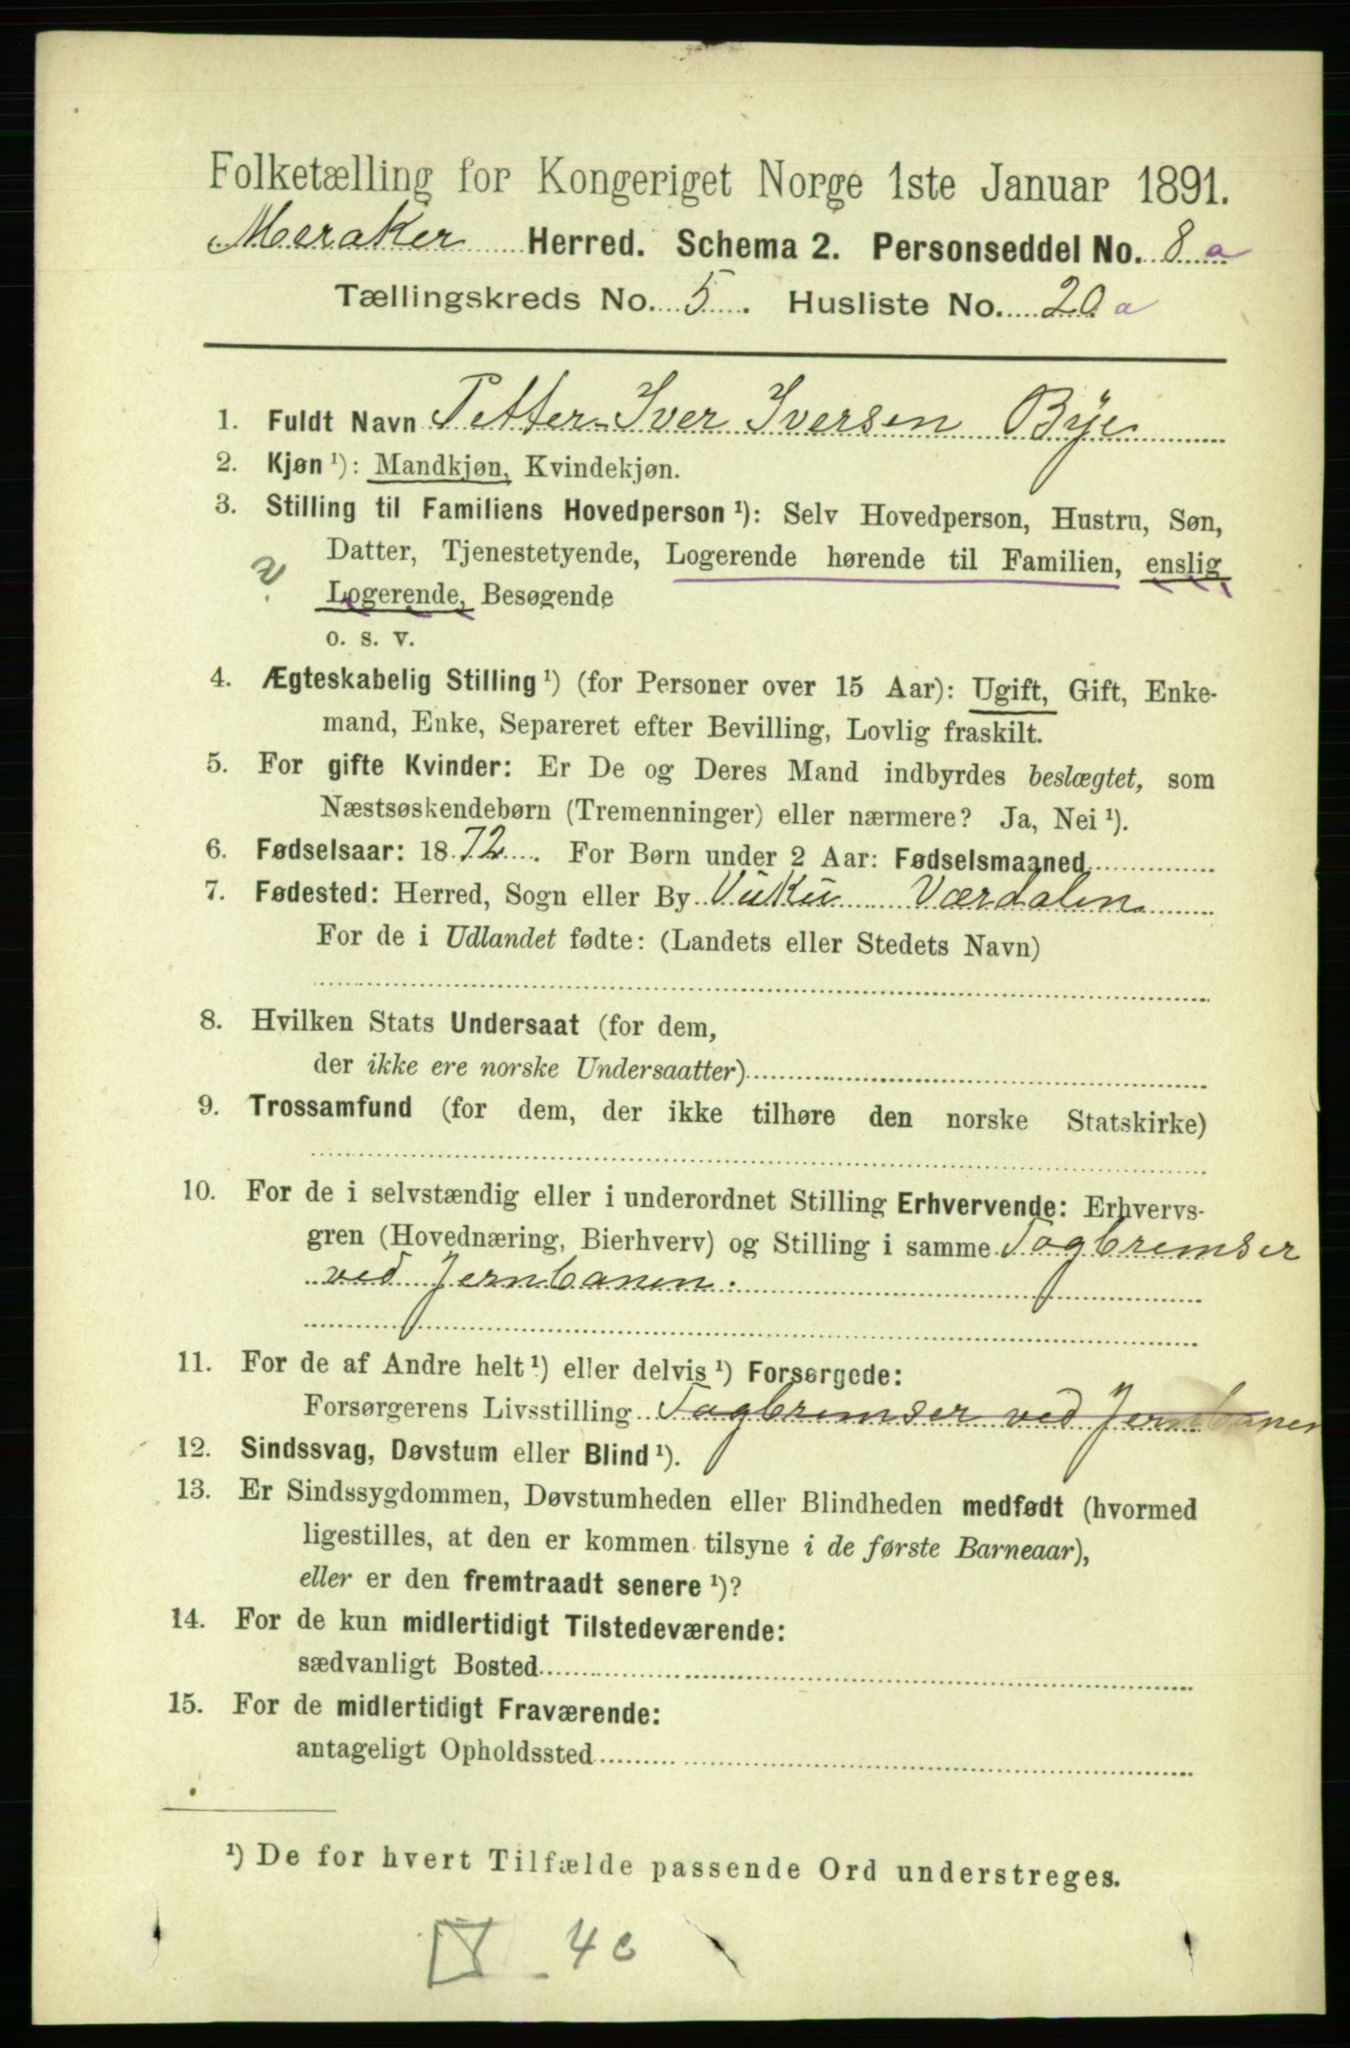 Folketælling for Kongeriget Norge 1ste Januar 1891.
Meraker Herred. Schema 2. Personseddel No. 8 a
Tællingskreds No. 5. Husliste No. 20 a
1. Fuldt Navn Petter Iver Iversen Bye
2. Kjøn ¹): Mandkjøn, Kvindekjøn.
3. Stilling til Familiens Hovedperson ¹): Selv Hovedperson, Hustru, Søn,
Datter, Tjenestetyende, Logerende hørende til Familien, enslig
? Logerende, Besøgende
o. s. v.
4. Ægteskabelig Stilling ¹) (for Personer over 15 Aar): Ugift, Gift, Enke-
mand, Enke, Separeret efter Bevilling, Lovlig fraskilt.
5. For gifte Kvinder: Er De og Deres Mand indbyrdes beslægtet, som
Næstsøskendebørn (Tremenninger) eller nærmere? Ja, Nei ¹).
6. Fødselsaar: 1872. For Børn under 2 Aar: Fødselsmaaned
7. Fødested: Herred, Sogn eller By Vuku Værdalen
For de i Udlandet fødte: (Landets eller Stedets Navn)
8. Hvilken Stats Undersaat (for dem,
der ikke ere norske Undersaatter)
9. Trossamfund (for dem, der ikke tilhøre den norske Statskirke)
10. For de i selvstændig eller i underordnet Stilling Erhvervende: Erhvervs-
gren (Hovednæring, Bierhverv) og Stilling i samme Togbremser
ved Jernbanen.
11. For de af Andre helt ¹) eller delvis ¹) Forsørgede:
Forsørgerens Livsstilling Togbremser ved Jernbanen
12. Sindssvag, Døvstum eller Blind ¹).
13. Er Sindssygdommen, Døvstumheden eller Blindheden medfødt (hvormed
ligestilles, at den er kommen tilsyne i de første Barneaar),
eller er den fremtraadt senere ¹)?
14. For de kun midlertidigt Tilstedeværende:
sædvanligt Bosted
15. For de midlertidigt Fraværende:
antageligt Opholdssted
¹) De for hvert Tilfælde passende Ord understreges.